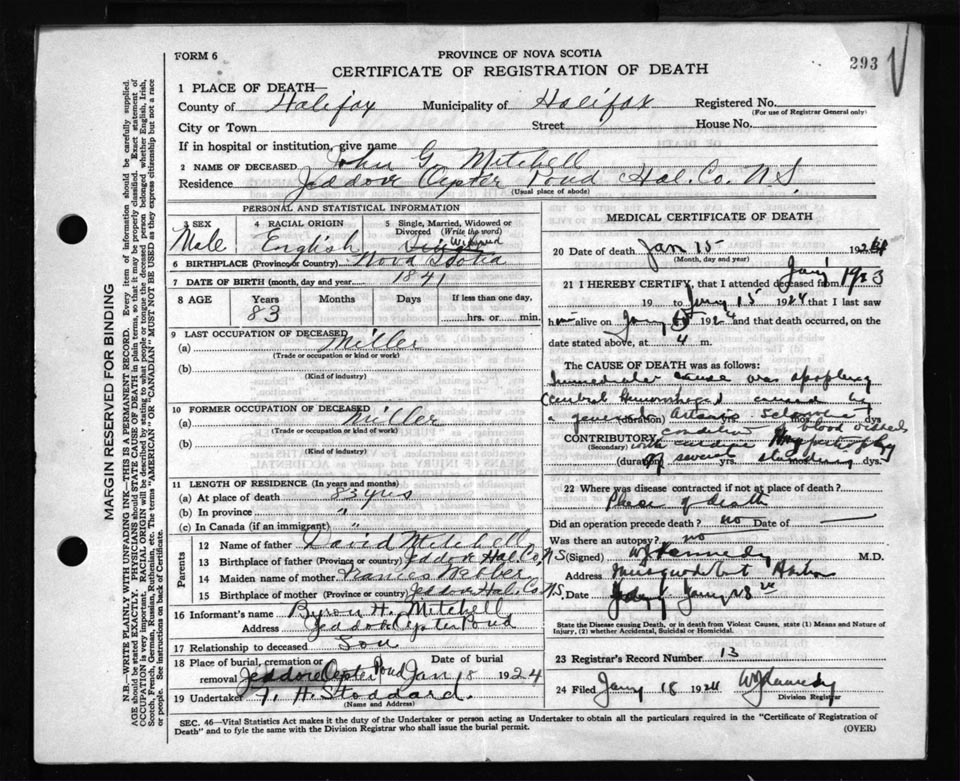 FORM 6
PROVINCE OF NOVA SCOTIA
CERTIFICATE OF REGISTRATION OF DEATH
293
1 PLACE OF DEATH—
County of Halifax Municipality of Halifax Registered No.
(For use of Registrar General only)
City or Town Street House No.
If in hospital or institution, give name
2 NAME OF DECEASED John G. Mitchell
Residence Jeddore Oyster Pond Hal. Co. N.S.
(Usual place of abode)
PERSONAL AND STATISTICAL INFORMATION
3 SEX Male
4 RACIAL ORIGIN English
5 Single, Married, Widowed or Divorced (Write the word) Widowed
6 BIRTHPLACE (Province or Country) Nova Scotia
7 DATE OF BIRTH (month, day and year) 1841
8 AGE Years 83 Months Days If less than one day, hrs. or min.
9 LAST OCCUPATION OF DECEASED
(a) Miller
(Trade or occupation or kind or work)
(b)
(Kind of industry)
10 FORMER OCCUPATION OF DECEASED
(a) Miller
(Trade or occupation or kind or work)
(b)
(Kind of industry)
11 LENGTH OF RESIDENCE (In years and months)
(a) At place of death 83 yrs
(b) In province "
(c) In Canada (if an immigrant) "
Parents
12 Name of father David Mitchell
13 Birthplace of father (Province or Country) Jeddore Hal. Co. N.S
14 Maiden name of mother Frances Webber
15 Birthplace of mother (Province or Country) Jeddore Hal. Co. N.S.
16 Informant's name Byron H. Mitchell
Address Jeddore Oyster Pond
17 Relationship to deceased Son
18 Place of burial, cremation or removal Jeddore Oyster Pond Date of burial Jan 18 1924
19 Undertaker F. H. Stoddard.
(Name and Address)
MEDICAL CERTIFICATE OF DEATH
20 Date of death Jan 15 1924
(Month, day and year)
21 I HEREBY CERTIFY, that I attended deceased from Jany 1923
19 to Jany 15 1924 that I last saw
him alive on Jany 15 1924 and that death occurred, on the
date stated above, at 4 m.
The CAUSE OF DEATH was as follows:
Immediate cause was apoplexy
Cerebral Hemorrhage caused by
a general (duration) Arterio Sclerosis dys.
condition blood vessels
CONTRIBUTORY with cardiac Hypertrophy
(Secondary)
(duration) of several yrs. standing mos. dys.
22 Where was disease contracted if not at place of death?
Place of death
Did an operation precede death? no Date of —
Was there an autopsy? no
(Signed) W J Kennedy M.D.
Address Musquodoboit Harbor
Date Jany 18
State the Disease causing Death, or in death from Violent Causes, state (1) Means and Nature of
Injury, (2) whether Accidental, Suicidal or Homicidal.
23 Registrar's Record Number 13
24 Filed Jany 18 1924 W J Kennedy
Division Registrar
SEC. 46—Vital Statistics Act makes it the duty of the Undertaker or person acting as Undertaker to obtain all the particulars required in the "Certificate of Registration of
Death" and to fyle the same with the Division Registrar who shall issue the burial permit.
(OVER)
MARGIN RESERVED FOR BINDING
N.B.—WRITE PLAINLY WITH UNFADING INK—THIS IS A PERMANENT RECORD. Every item of information should be carefully supplied.
AGE should be stated EXACTLY. PHYSICIANS should STATE CAUSE OF DEATH in plain terms, so that it may be properly classified. Exact statement of
OCCUPATION is very important. RACIAL ORIGIN will be described by stating to what people or tongue the deceased person belonged whether English, Irish,
Scotch, French, German, Russian, Ruthenian, etc. The terms "AMERICAN" or "CANADIAN" MUST NOT BE USED as they express citizenship but not a race
or people. See instructions on back of Certificate.